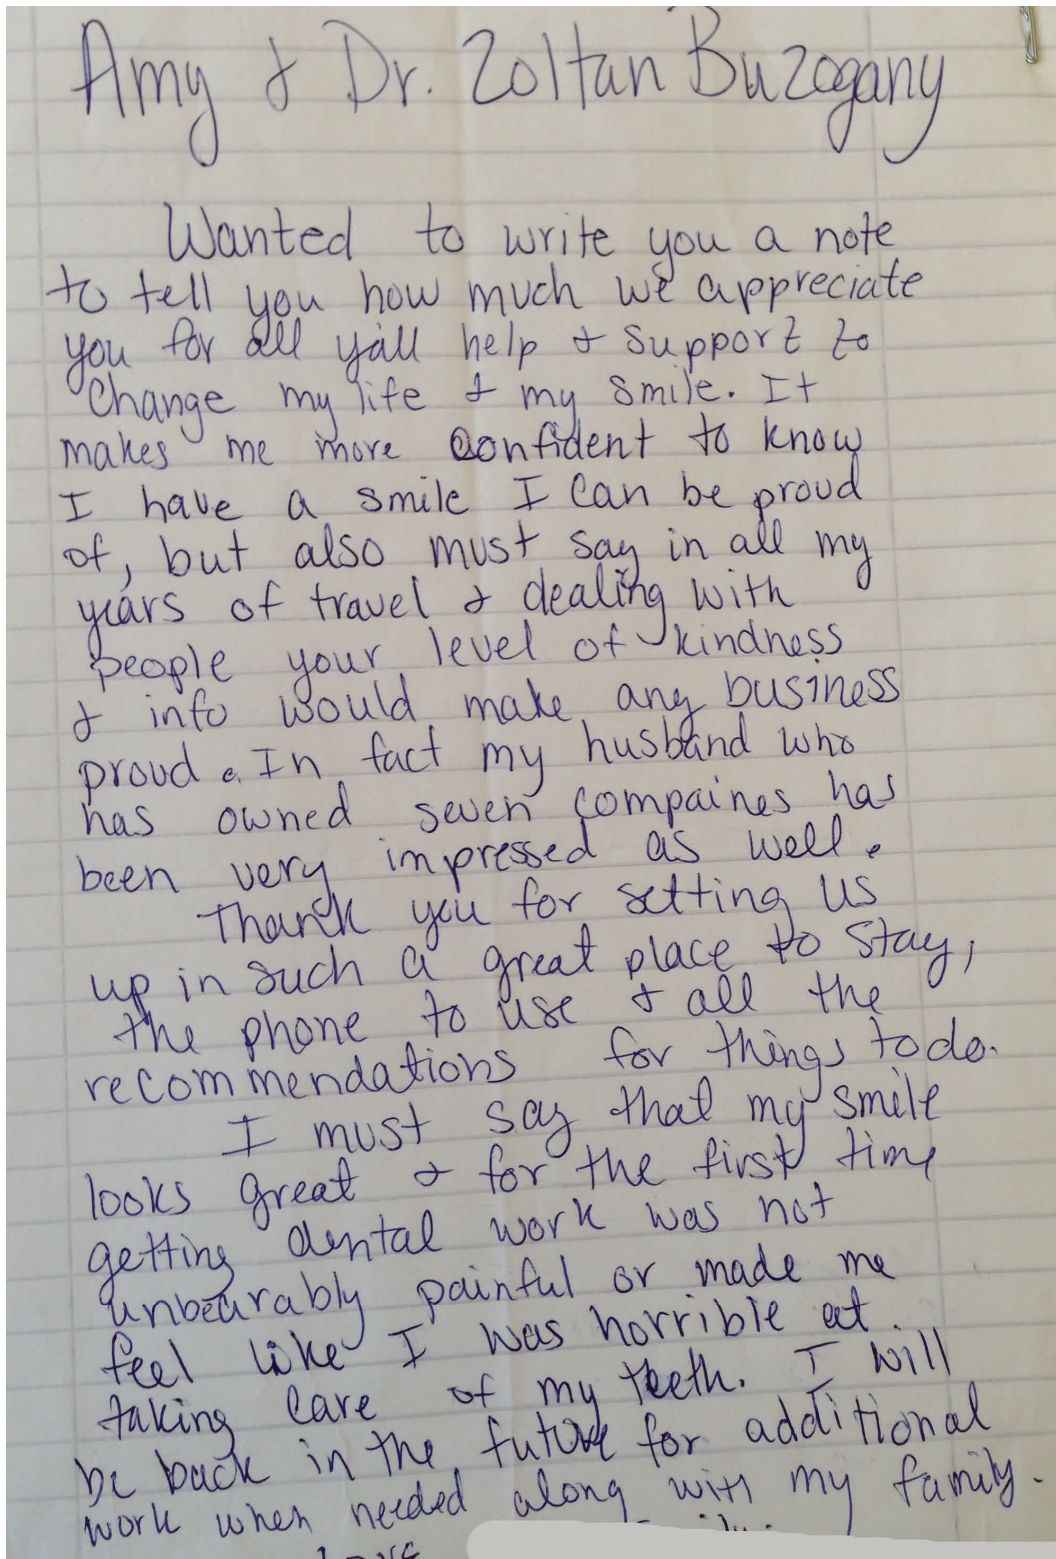 Amy & Dr. Zoltan Buzogany
Wanted to write you a note
to tell you how much we appreciate
you for all yáll help & Support to
Change my life & my Smile. It
makes me more confident to know
I have a smile I Can be proud
of, but also must say in all my
years of travel & dealing with
people your level of kindness
& info would make any business
proud. In fact my husband who
has owned seven compaines has
been very impressed as well.
Thank you for setting us
up in such a great place to stay,
the phone to use & all the
recommendations for things to do.
I must say that my smile
looks great & for the first time
getting dental work was not
unbearably painful or made me
feel like I was horrible at
taking Care of my teeth. I will
be back in the future for additional
work when needed along with my family.